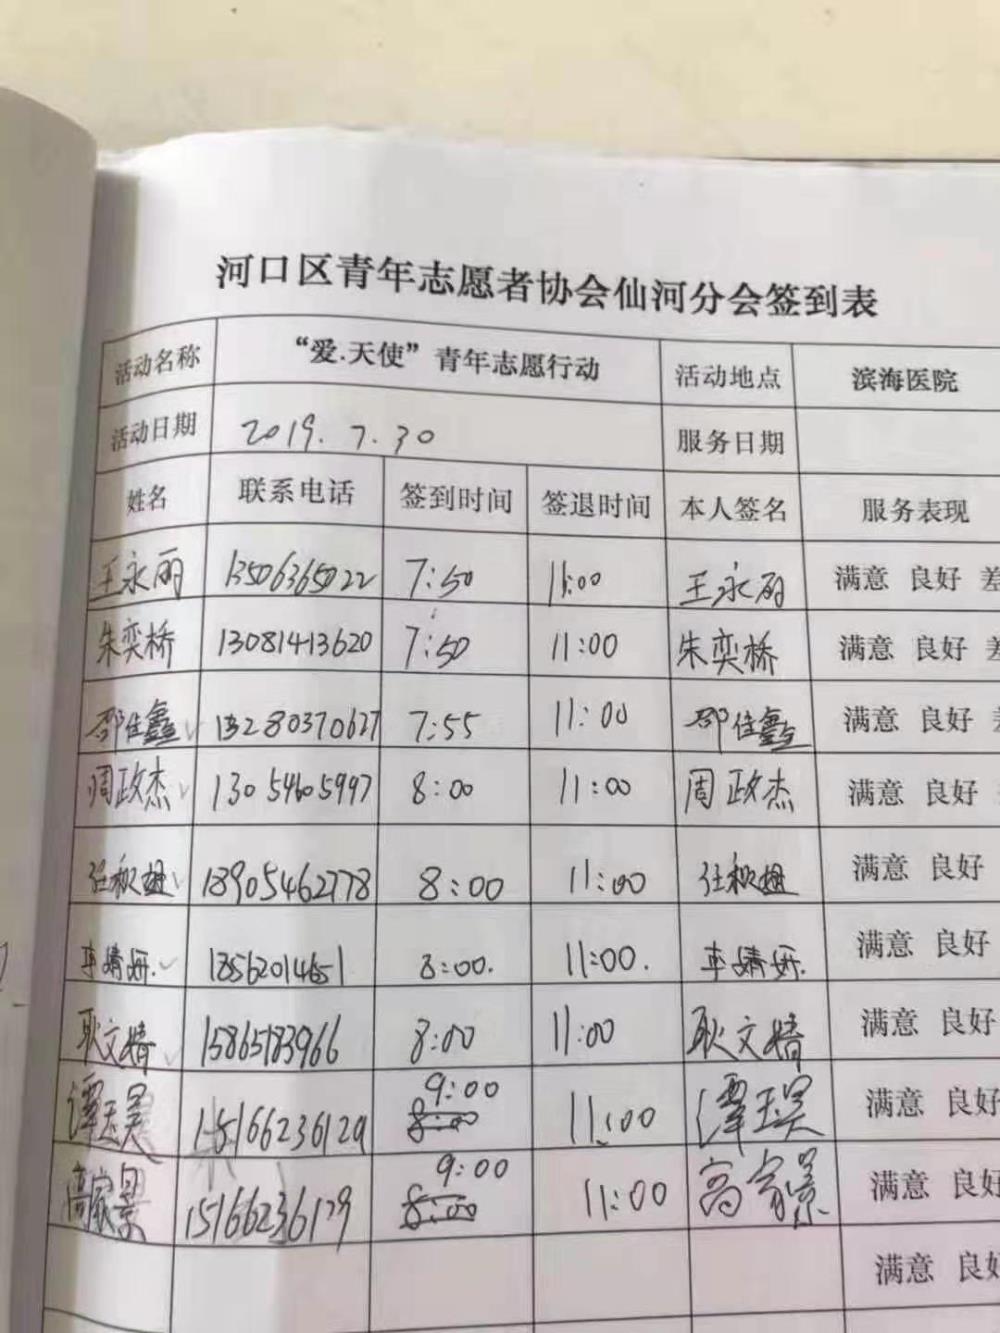 河口区青年志愿者协会仙河分会签到表
活动名称 “爱.天使”青年志愿行动 活动地点 滨海医院
活动日期 2019.7.30 服务日期
姓名 联系电话 签到时间 签退时间 本人签名 服务表现
王永丽 13506365022 7:50 11:00 王永丽 满意 良好 差
朱奕桥 13081413620 7:50 11:00 朱奕桥 满意 良好 差
邵佳鑫 13280370627 7:55 11:00 邵佳鑫 满意 良好
周政杰 13054605997 8:00 11:00 周政杰 满意 良好
任秋妲 18905462778 8:00 11:00 任秋妲 满意 良好
车婧妍. 18562014651 8:00. 11:00. 车婧妍. 满意 良好
耿文婧 15865183966 8:00 11:00 耿文婧 满意 良好
谭玉昊 15166236129 9:00 11:00 谭玉昊 满意 良好
高家景 15166236129 9:00 11:00 高家景 满意 良好
满意 良好